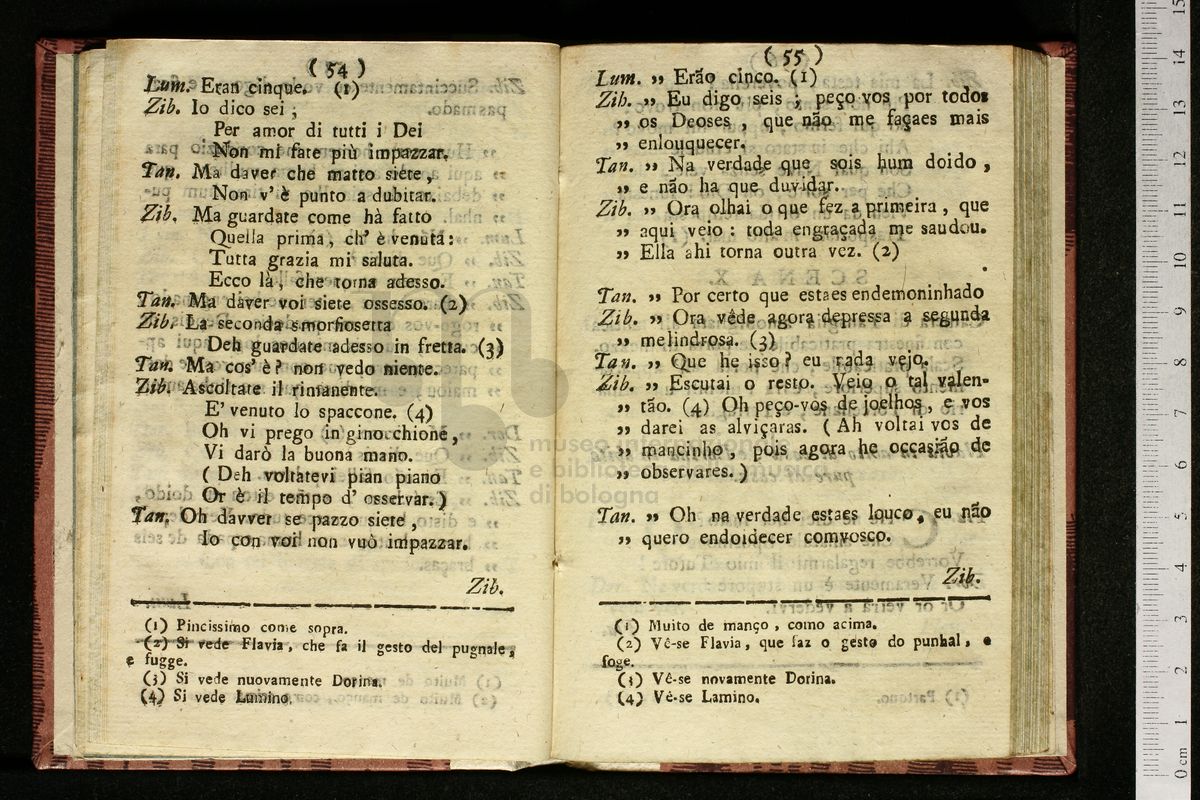 (54)
Lum. Eran cinque. (1)
Zib. Io dico sei ;
Per amor di tutti i Dei
Non mi fate più impazzar.
Tan. Ma daver che matto siete,
Non v' è punto a dubitar.
Zib. Ma guardate come hà fatto
Quella prima, ch' è venuta:
Tutta grazia mi saluta.
Ecco là, che torna adesso.
Tan. Ma daver voi siete ossesso. (2)
Zib. La seconda smorfiosetta
Deh guardate adesso in fretta. (3)
Tan. Ma cos' è? non vedo niente.
Zib. Ascoltate il rimanente.
E' venuto lo spaccone. (4)
Oh vi prego in ginocchione,
Vi darò la buona mano.
( Deh voltatevi pian piano
Or è il tempo d' osservar. )
Tan. Oh davver se pazzo siete,
Io con voi non vuò impazzar.
Zib.
(1) Pincissimo come sopra.
(2) Si vede Flavia, che fa il gesto del pugnale,
e fugge.
(3) Si vede nuovamente Dorina.
(4) Si vede Lumino.
(55)
Lum. ,, Erão cinco. (1)
Zib. ,, Eu digo seis ; peço vos por todos
,, os Deoses , que não me façaes mais
,, enlouquecer.
Tan. ,, Na verdade que sois hum doido ,
,, e não ha que duvidar.
Zib. ,, Ora olhai o que fez a primeira , que
,, aqui veio : toda engraçada me saudou.
,, Ella ahi torna outra vez. (2)
Tan. ,, Por certo que estaes endemoninhado
Zib. ,, Ora vêde agora depressa a segunda
,, melindrosa. (3)
Tan. ,, Que he isso? eu nada vejo.
Zib. ,, Escutai o resto. Veio o tal valen-
,, tão. (4) Oh peço-vos de joelhos , e vos
,, darei as alviçaras. ( Ah voltai vos de
,, mancinho , pois agora he occasião de
,, observares. )
Tan. ,, Oh na verdade estaes louco, eu não
,, quero endoidecer comvosco.
Zib.
(1) Muito de manço , como acima.
(2) Vê-se Flavia, que faz o gesto do punhal, e
foge.
(3) Vê-se novamente Dorina.
(4) Vê-se Lamino.
museo internazionale
e biblioteca della musica
di bologna
0 cm 1 2 3 4 5 6 7 8 9 10 11 12 13 14 15